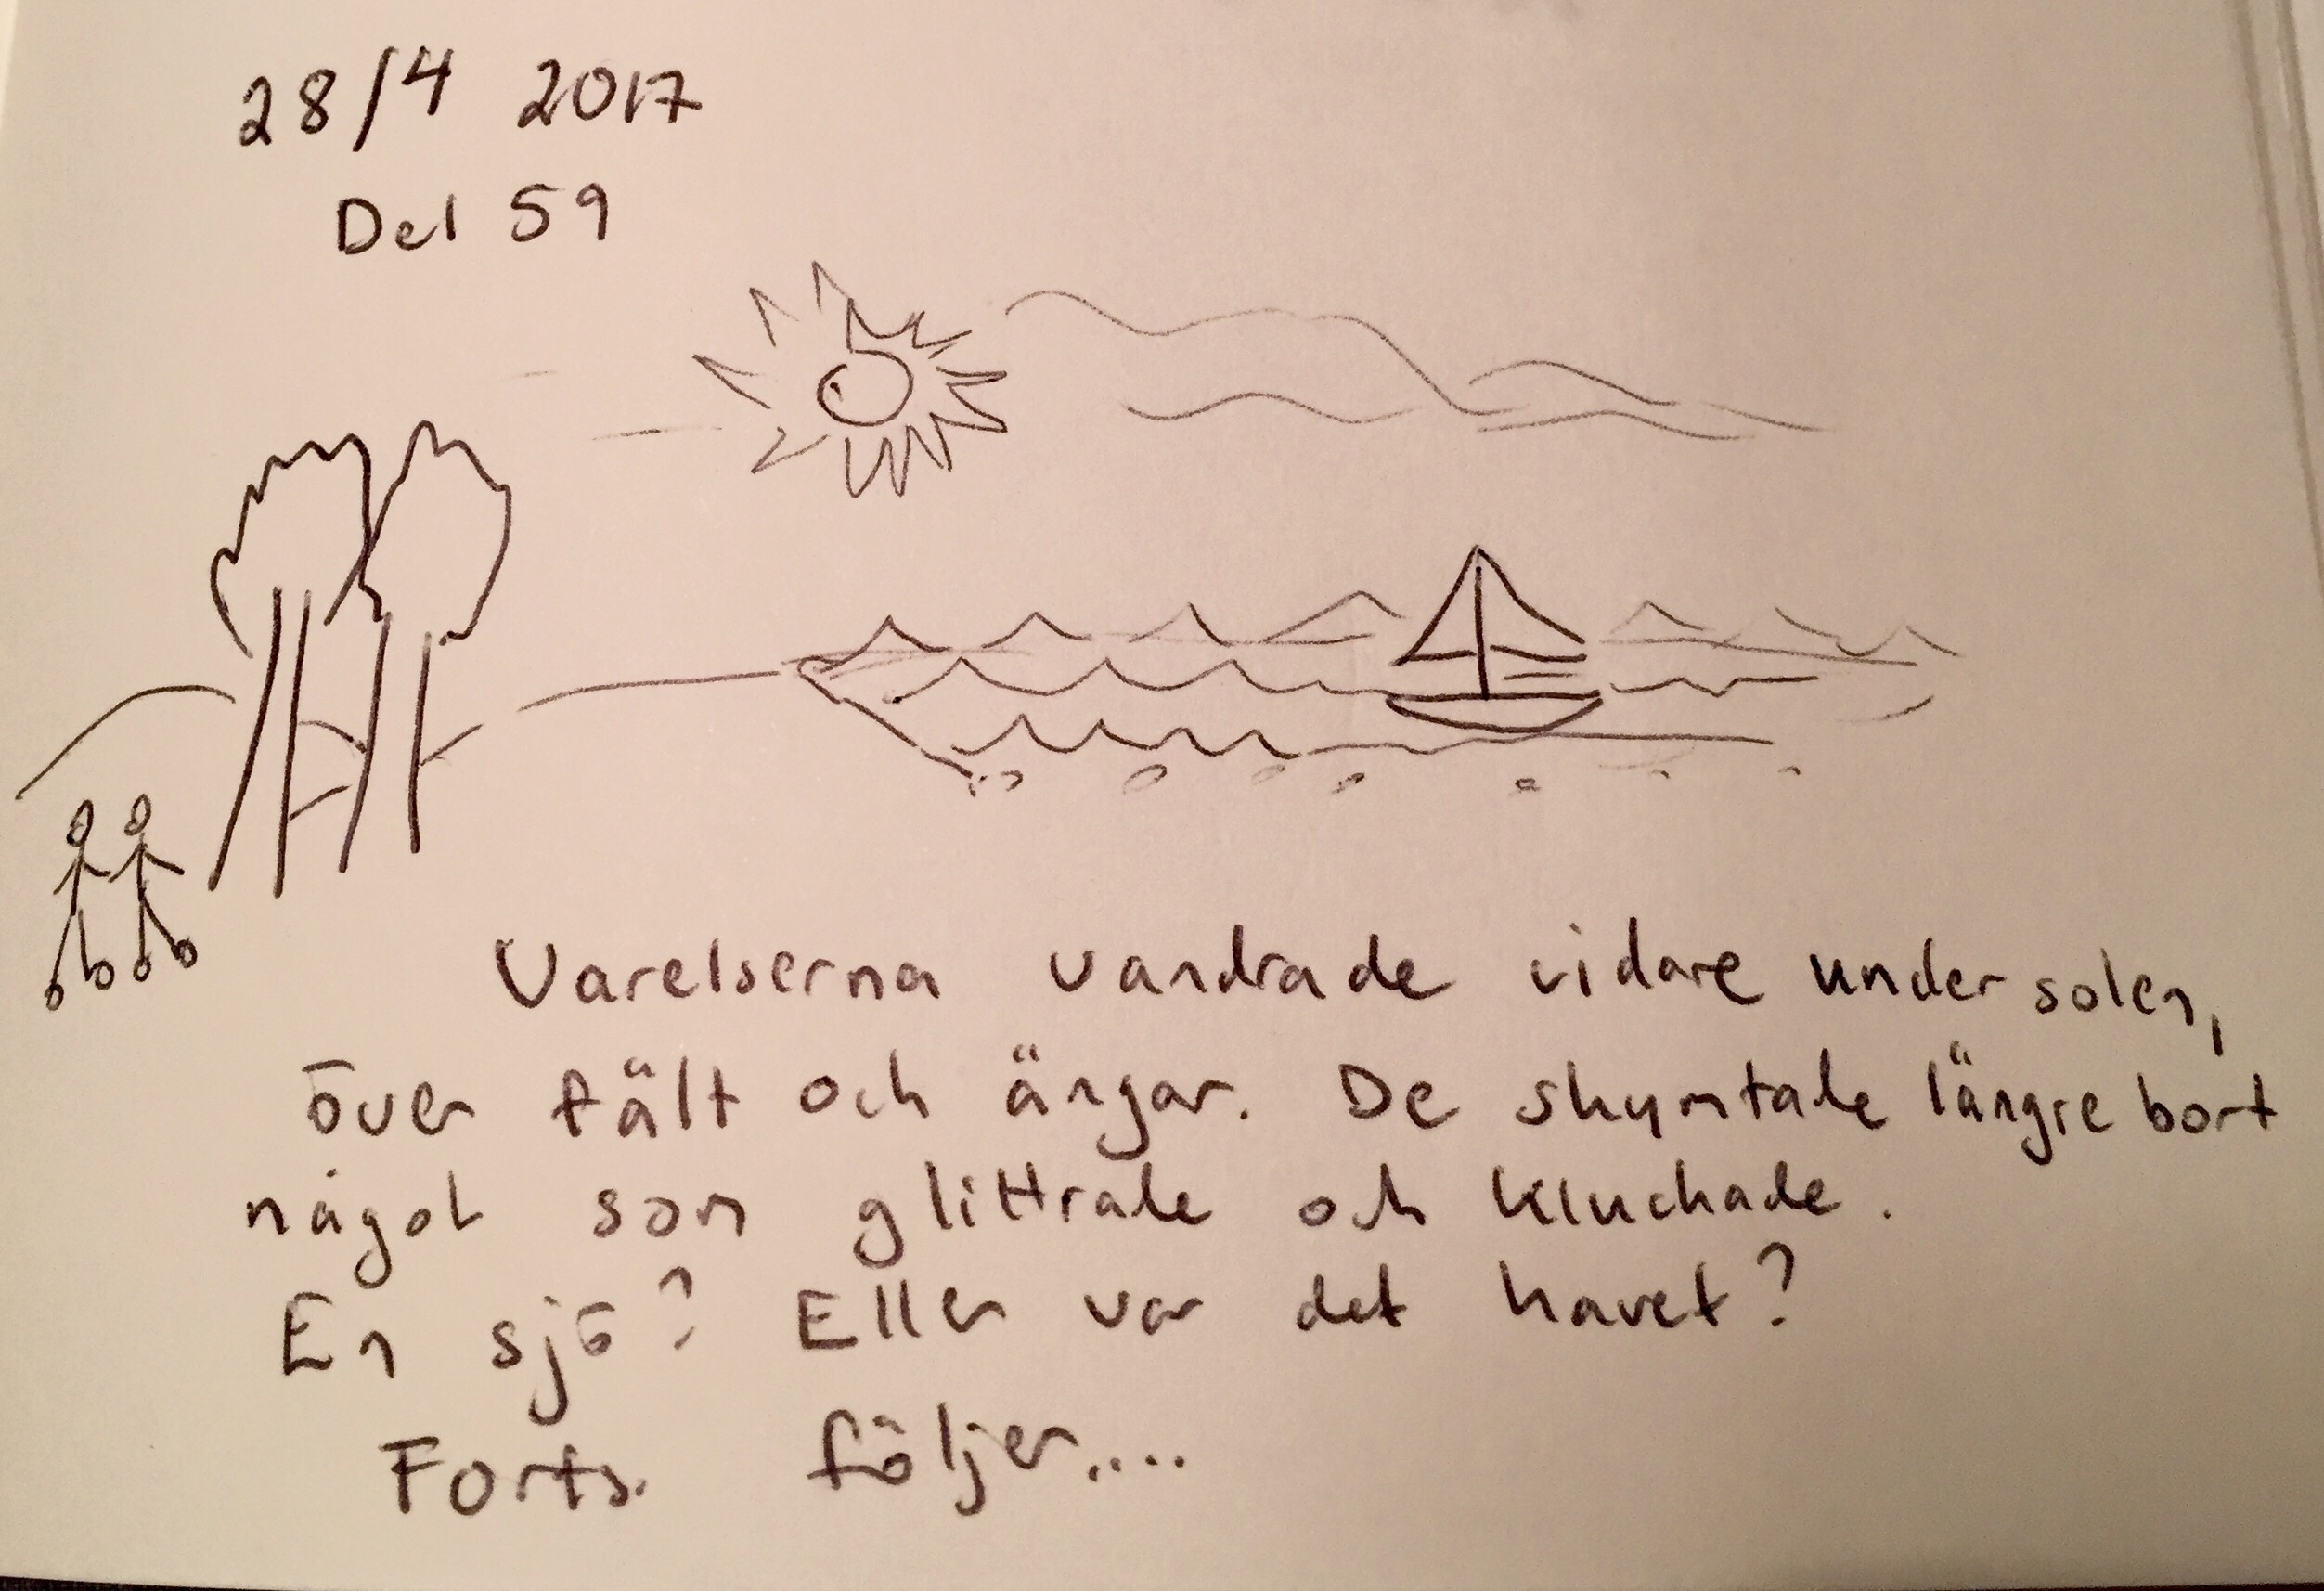 28/4 2017
Del 59
Varelserna vandrade vidare under solen,
över fält och ängar. De skymtade längre bort
något som glittrade och kluckade.
En sjö? Eller var det havet?
Forts. följer....